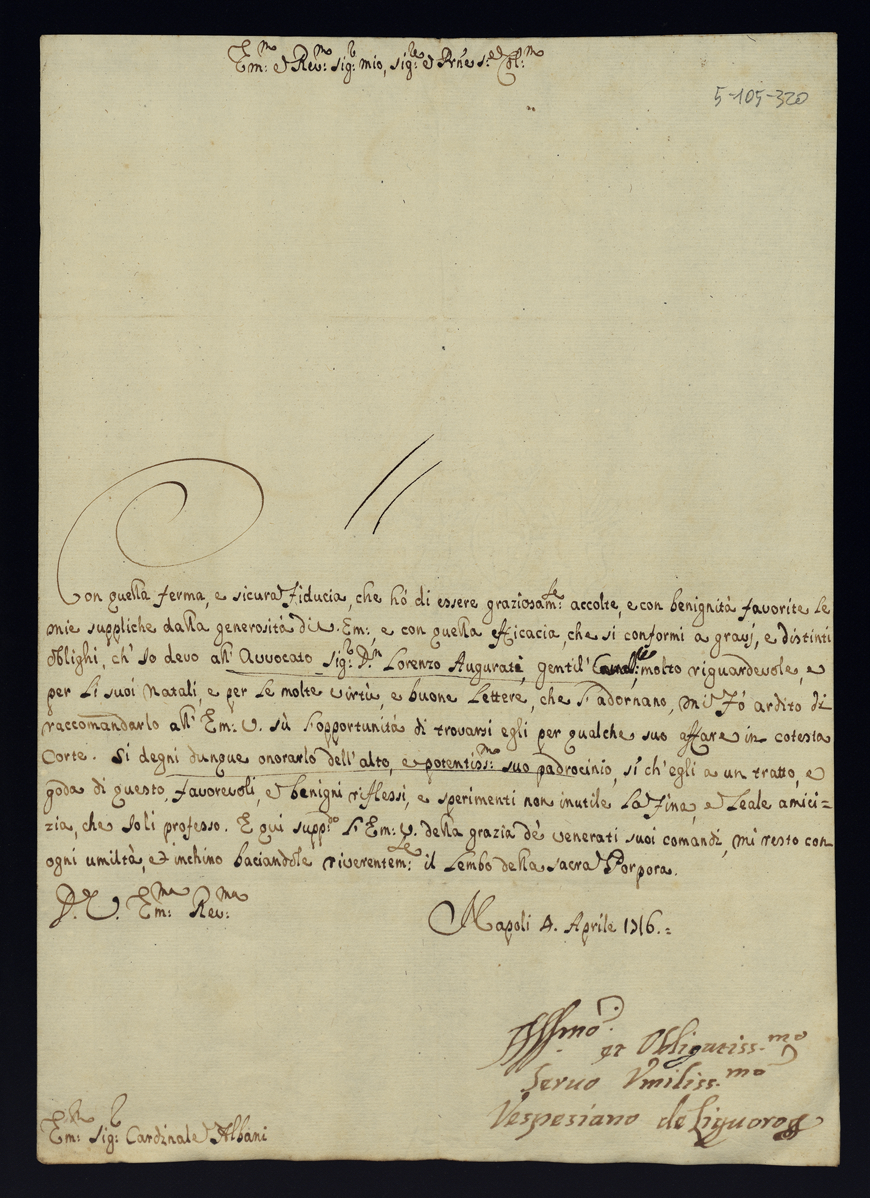 Em:mo e Rev:mo sig:r mio, sig:re e Prne s:e Col:mo
5-105-320
Con quella ferma, e sicura fiducia, che hò di essere graziosam:te accolte, e con benignità favorite le
mie suppliche dalla generosità di V. Em:, e con quella efficacia, che si conformi a gravi, e distinti
oblighi, ch' Io devo all' Avvocato sig:r D:n Lorenzo Augurate, gentil' molto riguardevole, e
per li suoi natali, e per le molte virtù, e buone lettere, che l' adornano, mi fò ardito di
raccomandarlo all' Em: V. sù l' opportunità di trovarsi egli per qualche suo affare in cotesta
Corte. Si degni dunque onorarlo dell' alto, e potentiss:mo suo padrocinio, sì ch' egli a un tratto, e
goda di questo, favorevoli, e benigni riflessi, e sperimenti non inutile la fina, e leale amici-
zia, che Io li professo. E qui supp:do l' Em: V. della grazia de' venerati suoi comandi, mi resto con
ogni umiltà, et inchino baciandole riverentem:te il lembo della sacra Porpora.
D. V. Em:ma Rev:ma
Napoli 4. Aprile 1716.=
et Obligatiss.mo
Servo Vmiliss.mo
Vespesiano de Liguoro
Em:mo Sig:r Cardinale Albani